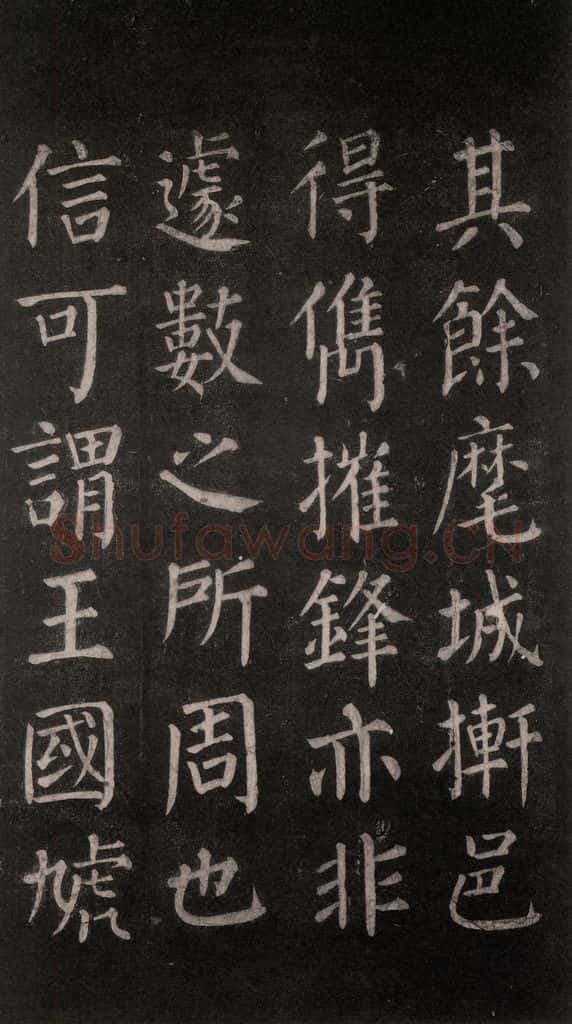 其餘麾城搟邑
得儁摧鋒亦非
遽數之所周也
信可謂王國虓
Shufawang.CN